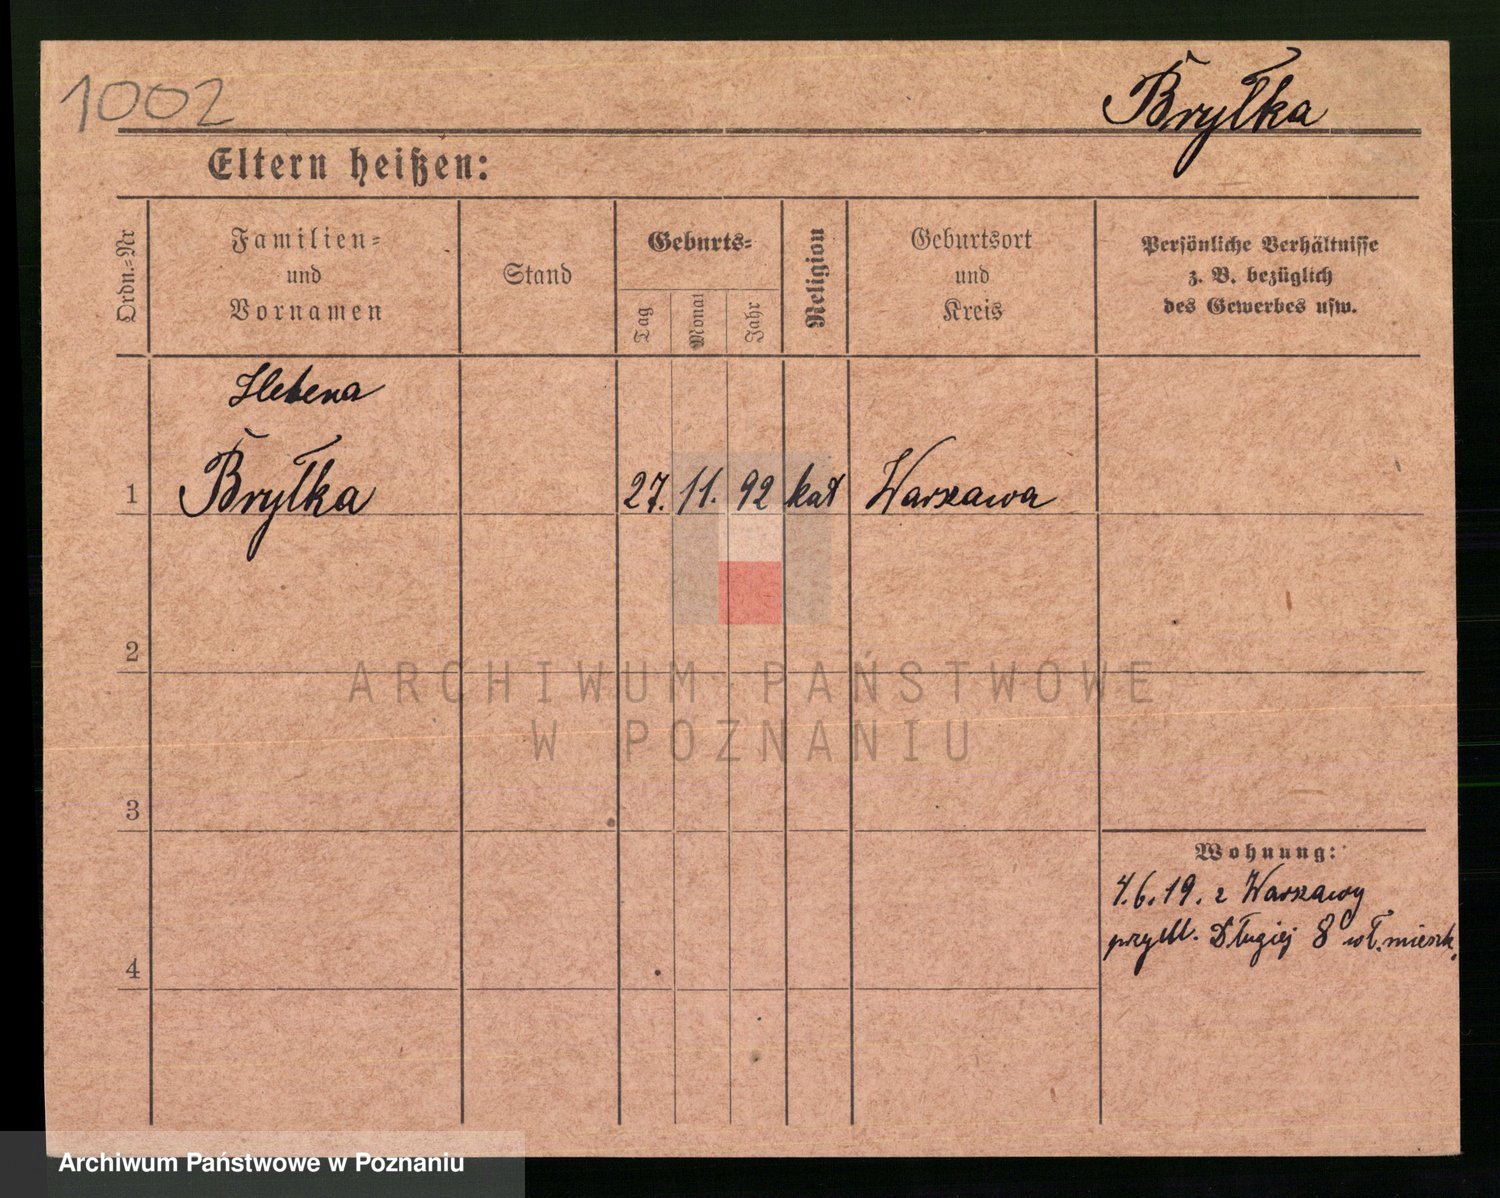 1002
Bryłka
Eltern heißen:
Ordn.-Nr
Familien-
und
Vornamen
Stand
Geburts-
Tag
Monat
Jahr
Religion
Geburtsort
und
Kreis
Persönliche Verhältnisse
z. B. bezüglich
des Gewerbes usw.
Helena
1 Bryłka 27. 11. 92 kat Warszawa
2
ARCHIWUM PAŃSTWOWE
W POZNANIU
3
Wohnung:
4.6.19. z Warszawy
Długiej 8 wł. mieszk.
4
Archiwum Państwowe w Poznaniu